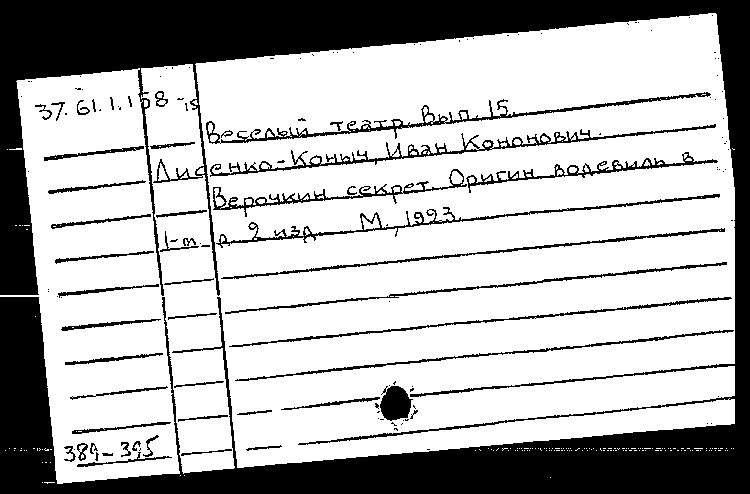 37.61.1.158-15
Веселый театр. Вып. 15.
Лисенко-Коныч, Иван Кононович.
Верочкин секрет. Оригин водевиль в
1-m д 2 изд М., 1923.
389-395